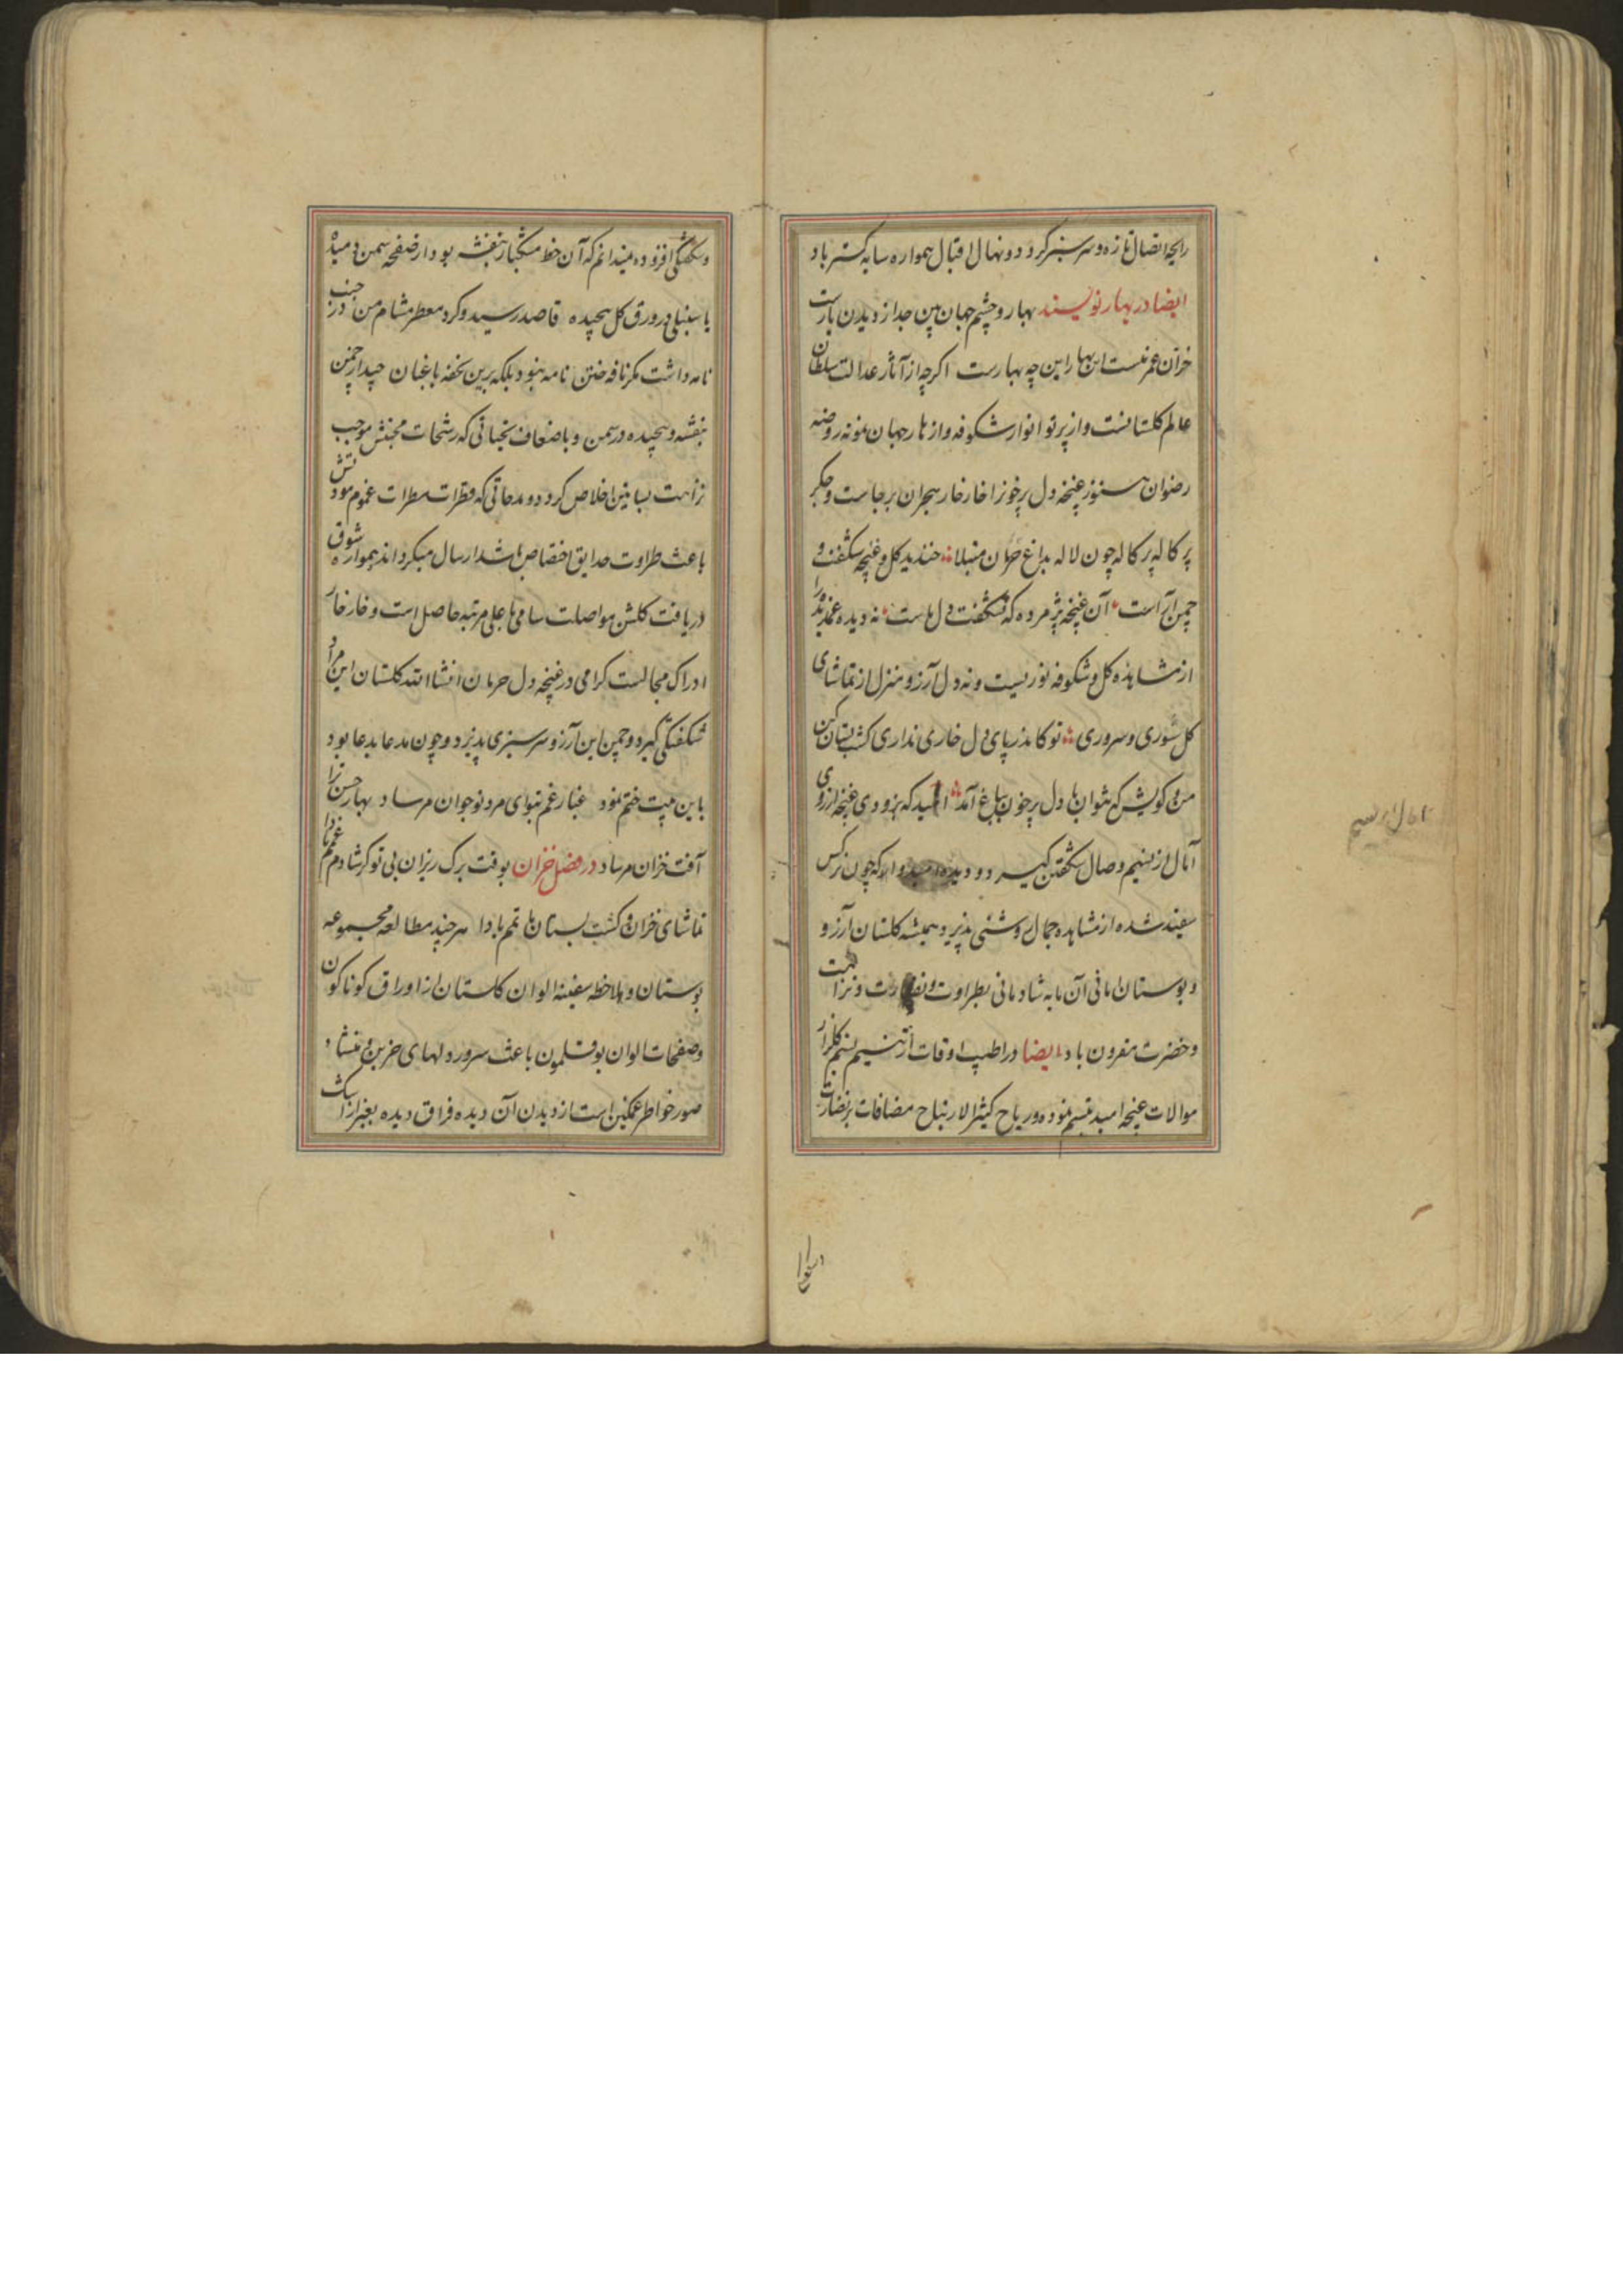 رایحه اتصال تازه و سرسبز گردد و نهال اقبال همواره سایه گستر باد
ایضا در بهار نویسند بهار و چشم جهان بین جدا از دیدن یارست
خزان عمر منست این بهار این چه بهارست اگرچه از آثار عدالت سلطان
عالم گلستانست و از پرتو انوار شکوفه و ازهار جهان نمونه روضه
رضوان هنوز غنچه دل پرخون را خارخار هجران برجاست و جگر
پرکاله پرکاله چون لاله بداغ حرمان مبتلا خندید گل و غنچه شکفت و
چمن آراست آن غنچه پژمرده که نشکفت دل ماست نه دیده غمدیده را
از مشاهده گل و شکوفه نوریست و نه دل آرزو منزل از تماشای
گل سوری و سروری تو کاندر پای دل خاری نداری گشت بستان کن
من و کویش که نتوان با دل پرخون بباغ آمد امید که بزودی غنچه آرزوی
آمال از نسیم وصال شکفتن گیرد و دیده امیدوار که چون نرگس
سفید شده از مشاهده جمال روشنی پذیرد همیشه گلستان آرزو
و بوستان امانی آن مایه شادمانی بطراوت و نضارت و نزاهت
و خضرت مقرون باد ایضا در اطیب اوقات از تنسیم نسیم گلزار
موالات غنچه امید تبسم نموده و ریاح کثیر الارتیاح مصافات بر نضارت
و شکفتگی افزوده میندانم که آن خط مشکبار بنفشه بود از صفحه سمن دمیده
یا سنبلی در ورق گل پیچیده قاصد رسید و کرد معطر مشام من در جیب
نامه داشت مگر نافه ختن نامه نبود بلکه برین تحفه باغبان چید از چمن
بنفشه و پیچیده در سمن و باضعاف تحیاتی که رشحات محبتش موجب
نزاهت بساتین اخلاص گردد و مدحاتی که قطرات مطرات غموم مودتش
باعث طراوت حدایق اختصاص باشد ارسال میگرداند همواره شوق
دریافت گلشن مواصلت سامی باعلی مرتبه حاصل است و خارخار
ادراک مجالست گرامی در غنچه دل حرمان انشاالله گلستان این مراد
شکفتگی گیرد و چمن این آرزو سرسبزی پذیرد و چون مدعا بدعا بود
باین بیت ختم نمود غبار غم بتو ای سرو نوجوان مرساد بهار حسن ترا
آفت خزان مرساد در فصل خزان بوقت برگ ریزان بی تو گر شادم غمم بادا
تماشای خزان و گشت بستان ماتمم بادا هرچند مطالعه مجموعه
بوستان و ملاحظه سفینه الوان گلستان از اوراق گوناگون
و صفحات الوان بوقلمون باعث سرور دلهای حزین و منشاء
صور خواطر غمگین است از دیدن آن دیده فراق دیده بغیر از اشک